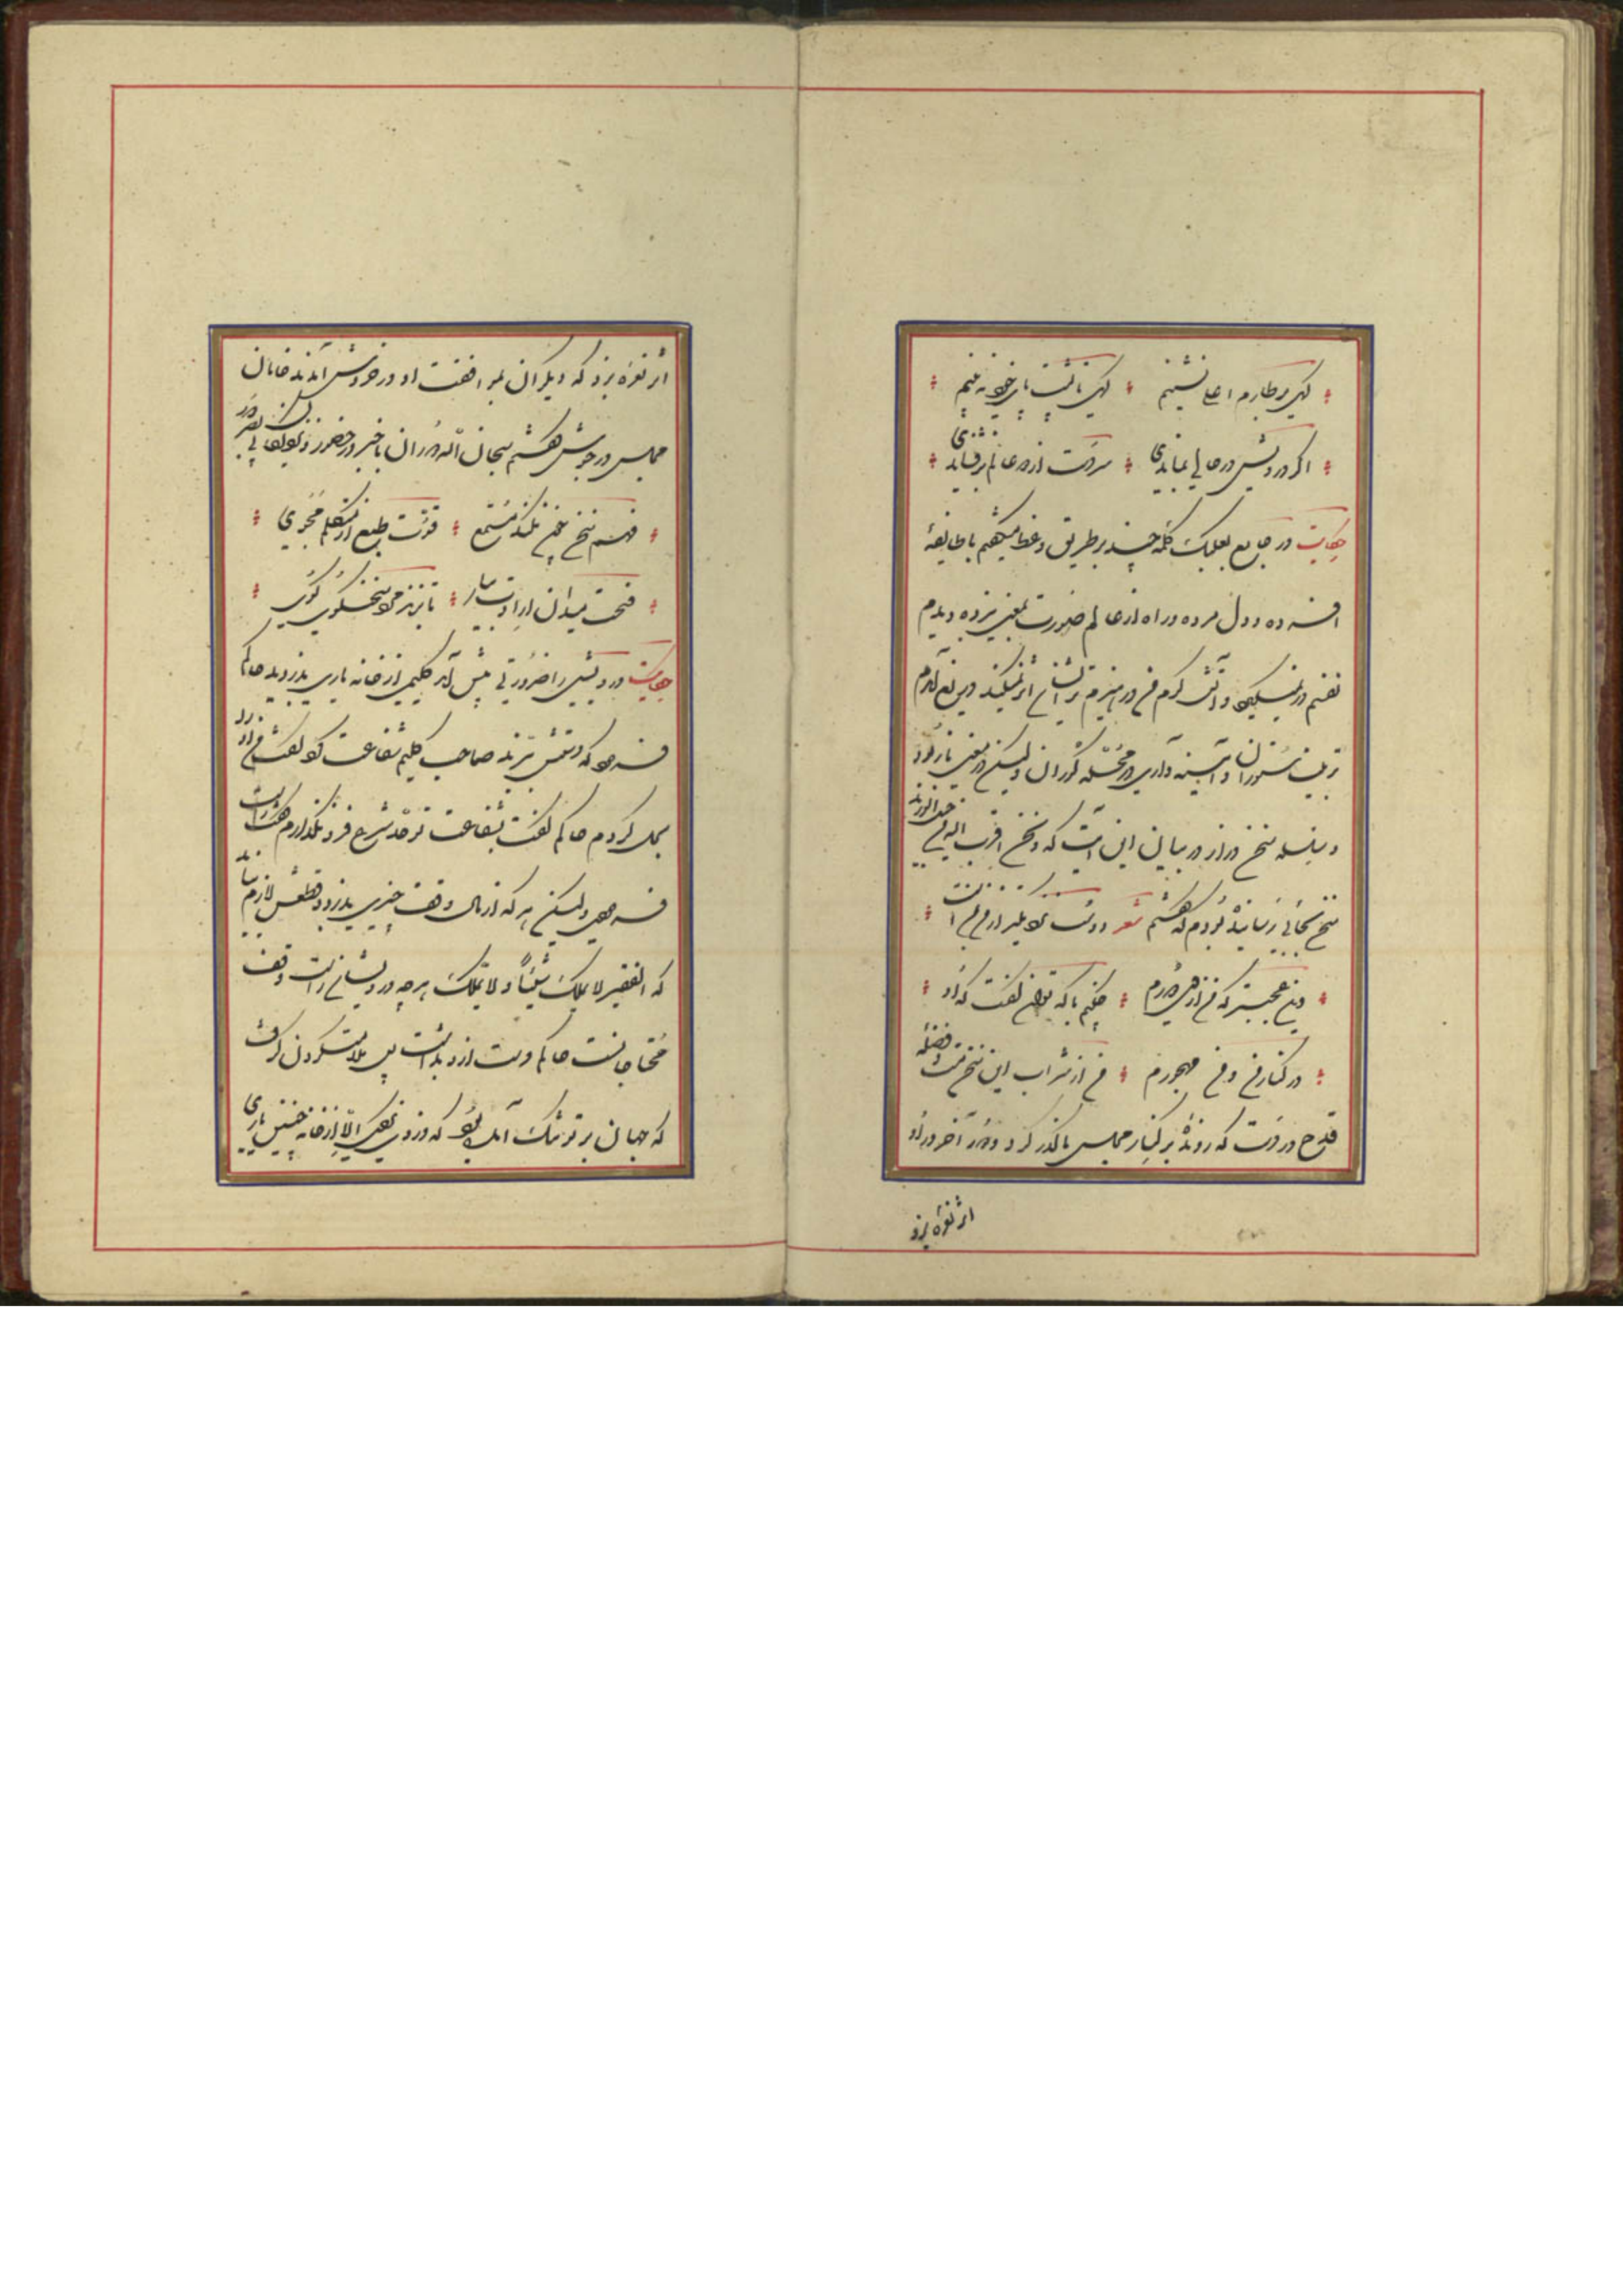 گهی بر طارم اعلی نشینم گهی تا پشت پای خود نه بینم
اگر درویش در حالی بماندی سر دست از دو عالم برفشاندی
حکایت در جامع بعلبک کلمه چند بر طریق وعظ میگفتم با طایفهٔ
افسرده و دل مرده و راه از عالم صورت بمعنی نبرده دیدم
نفسم در نمیگیرد و آتش گرم من در هیزم تر ایشان اثر نمیکند دریغ آمدم
تربیت ستوران و آیینه داری در محله کوران ولیکن در معنی باز بود
و سلسله سخن دراز در بیان این آیت که و نحن اقرب الیه من حبل الورید
سخن بجایی رسانیده بودم که گفتم شعر دوست نزدیکتر از من بمن است
وین عجبتر که من از وی دورم چکنم با که توان گفت که او
در کنار من و من مهجورم من از شراب این سخن مست و فضله
قدح در دست که روندهٔ بر کنار مجلس ما گذر کرد و دور آخر در او
اثر نعره بزد
اثر نعره بزد که دیگران بموافقت او در خروش آمدند خامان
مجلس در جوش گفتم سبحان الله دوران با خبر در حضور و نزدیکان بی بصر دور
فهم سخن چون نکند مستمع قوت طبع از متکلم مجوی
فسحت میدان ارادت بیار تا بزند مرد سخنگوی گوی
حکایت درویشی را ضرورتی پیش آمد گلیمی از خانه یاری بدزدید حاکم
فرمود که دستش ببرند صاحب گلیم شفاعت کرد گفت من او را
بحل کردم حاکم گفت بشفاعت تو حد شرع فرو نگذارم گفت راست
فرمودی ولیکن هر که از مال وقف چیزی بدزدد قطعش لازم نیاید
که الفقیر لا یملک شیئاً و لا یملک هر چه درویشانراست وقف
محتاجانست حاکم دست ازو بداشت پس ملامت کردن گرفت
که جهان بر تو تنگ آمده بود که دزدی نکردی الا از خانه چنین یاری